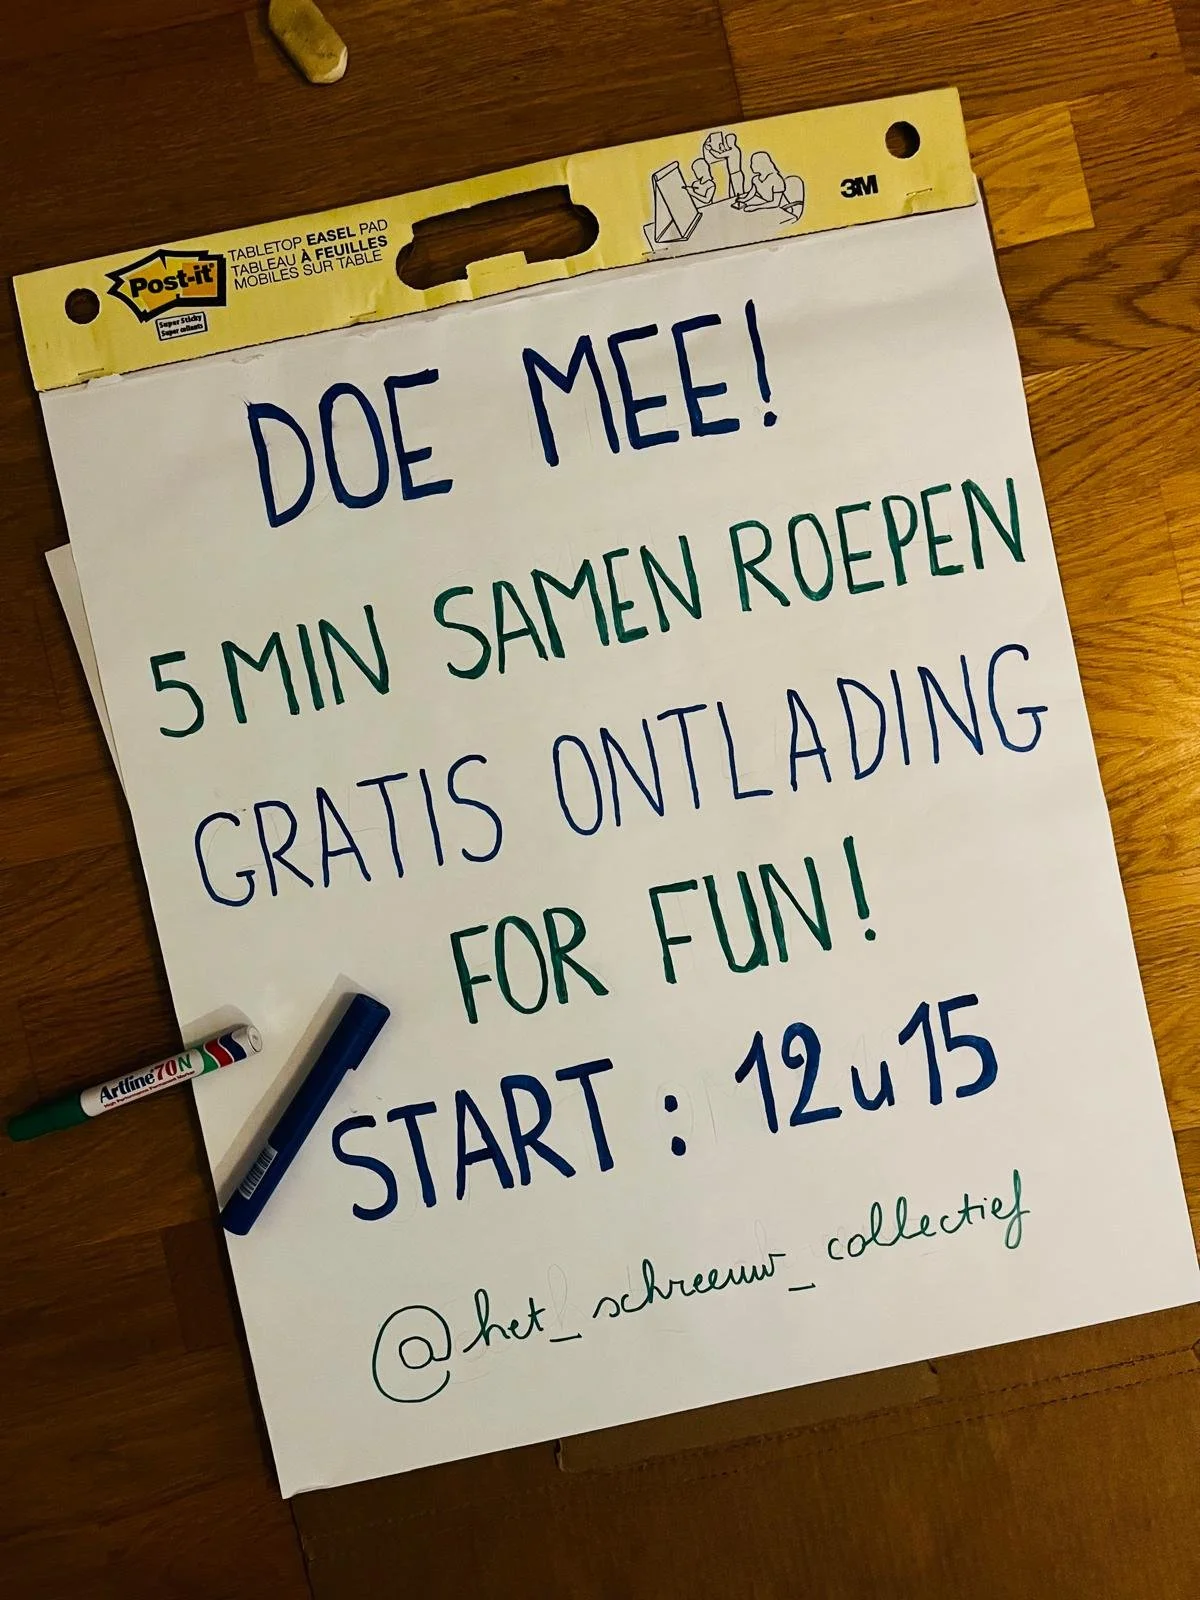 Post-it
Super Sticky
Super collants
TABLETOP EASEL PAD
TABLEAU À FEUILLES
MOBILES SUR TABLE
3M
DOE MEE!
5 MIN SAMEN ROEPEN
GRATIS ONTLADING
FOR FUN!
START : 12u15
@het_schreeuw_collectief
Artline 70N
High Performance Permanent Marker